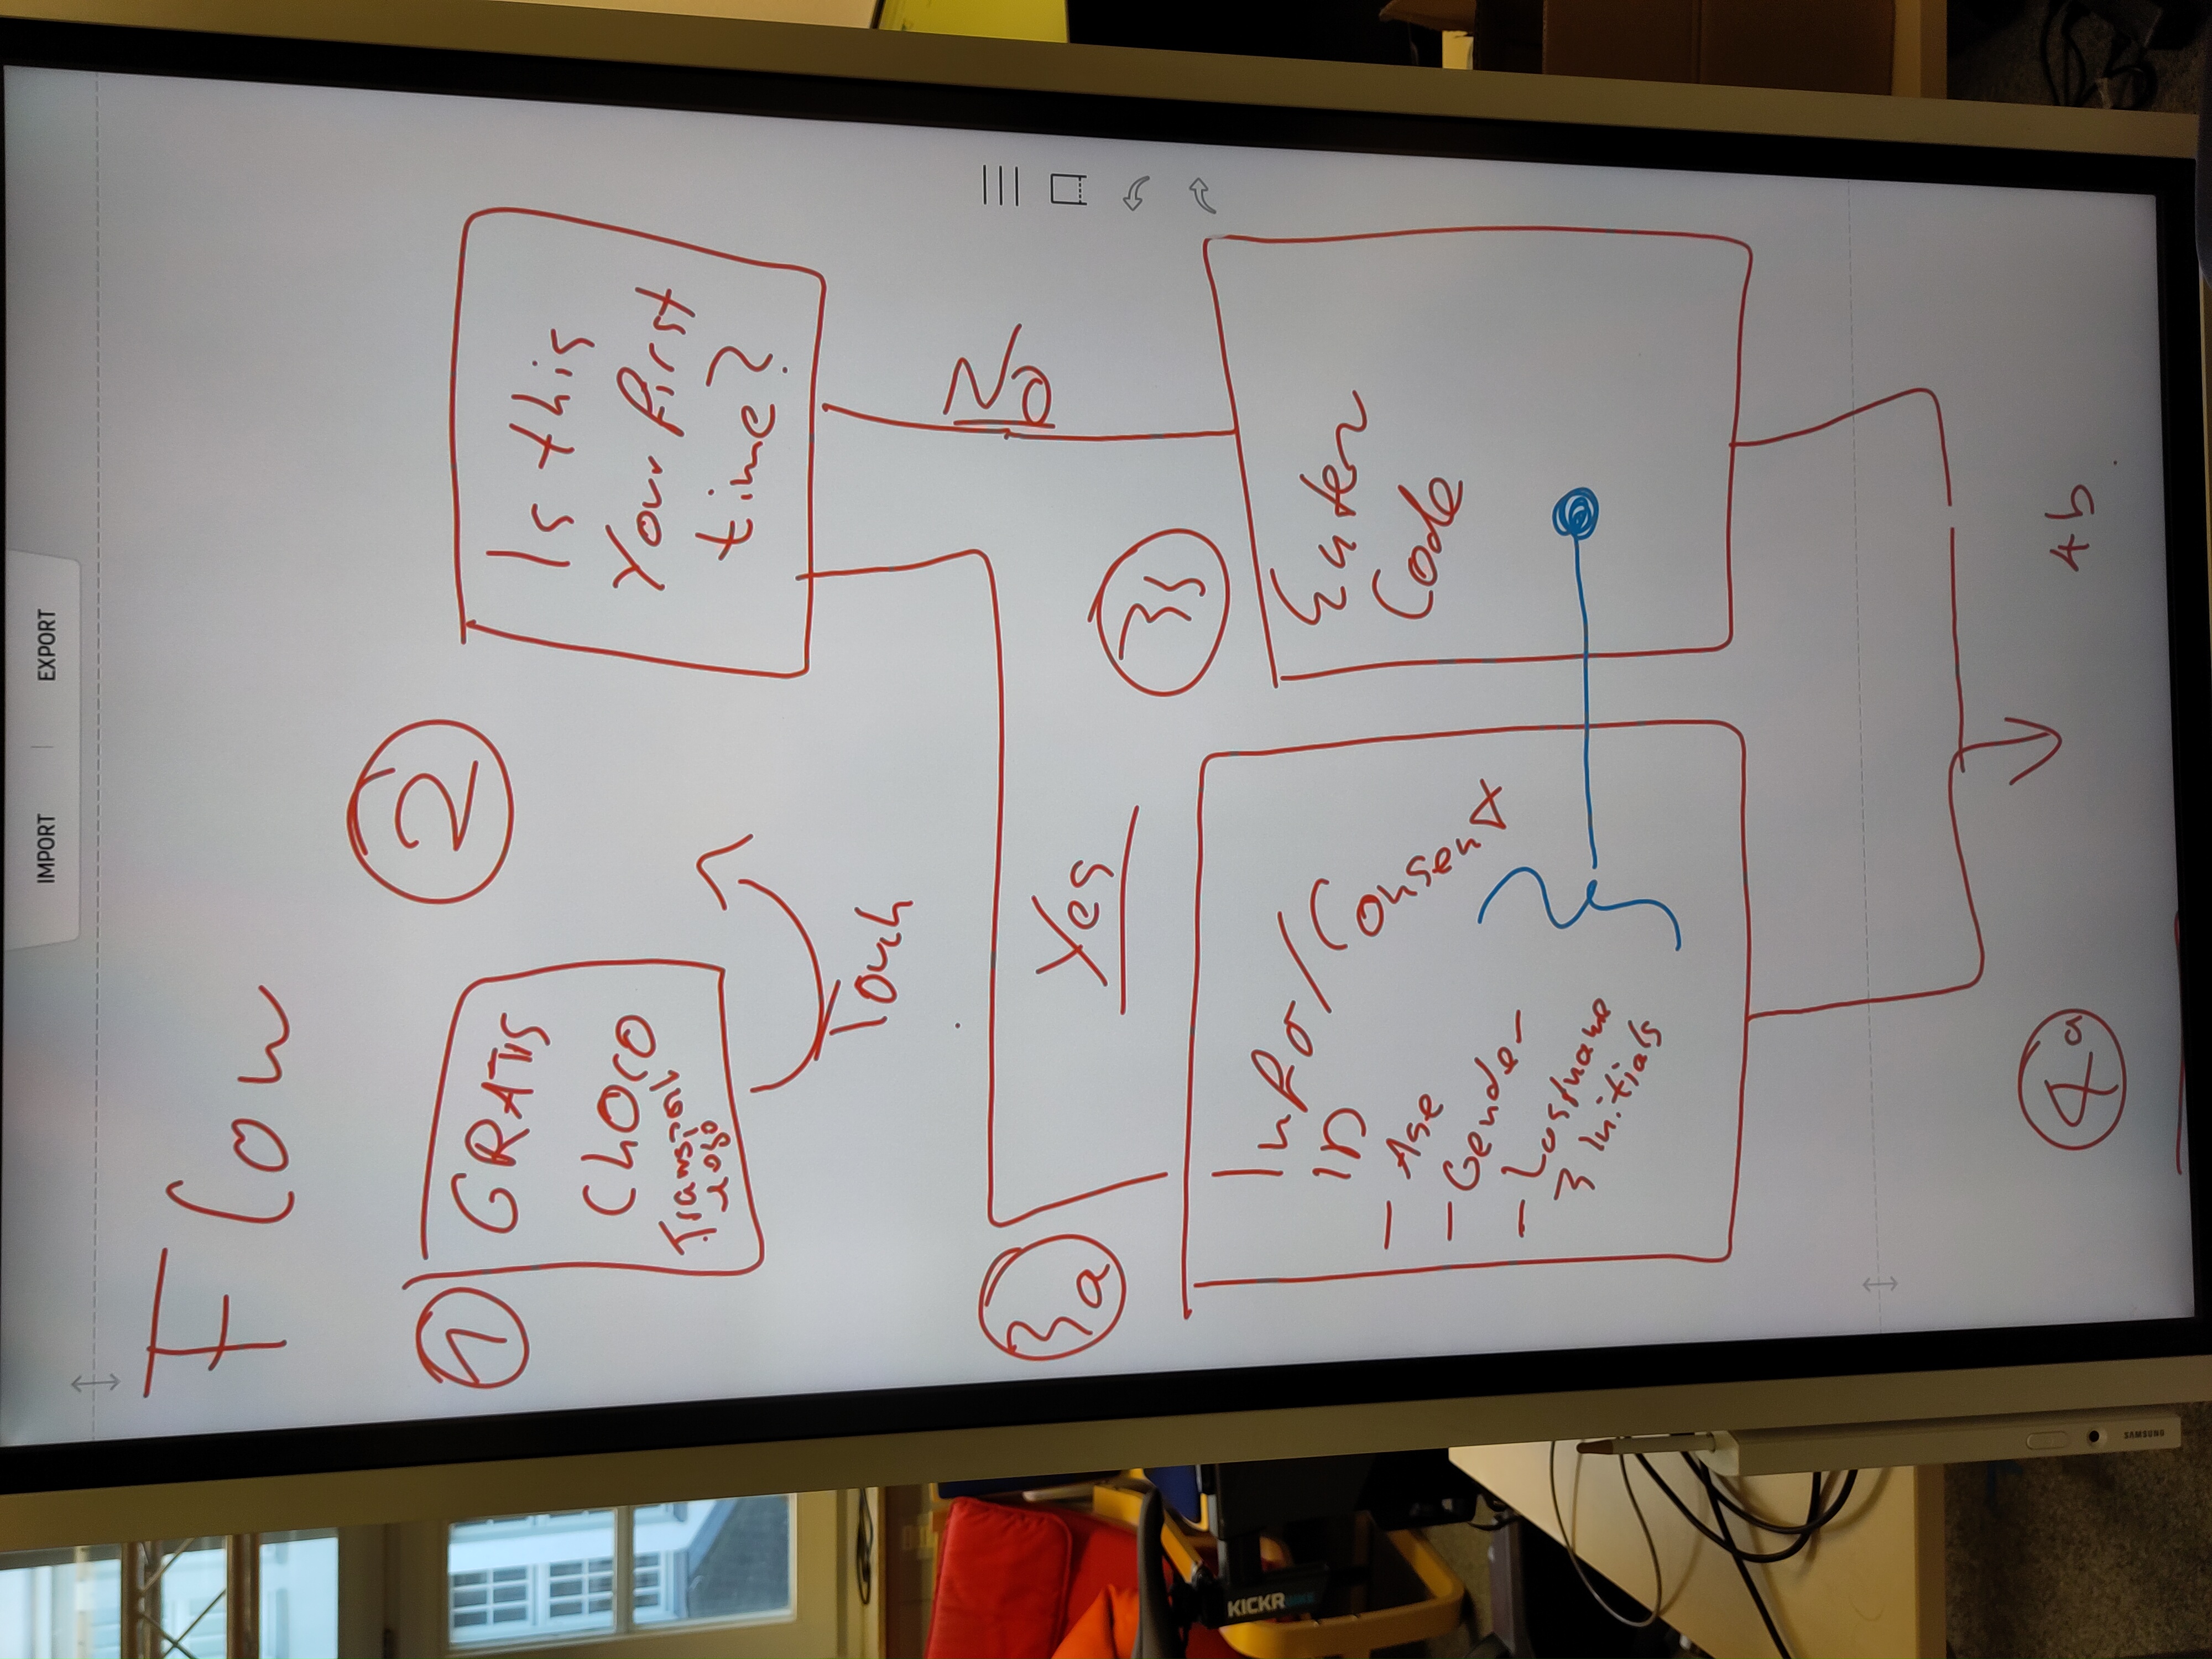 IMPORT EXPORT
Flow
1
GRATIS
CHOCO
Transport
Logo
2
Is this
Your first
time?
Touch
No
3a
Yes
3b
Info/Consent
ID
- Age
- Gender
- Lastname
3 Initials
Enter
Code
4a
4b
KICKR
SAMSUNG